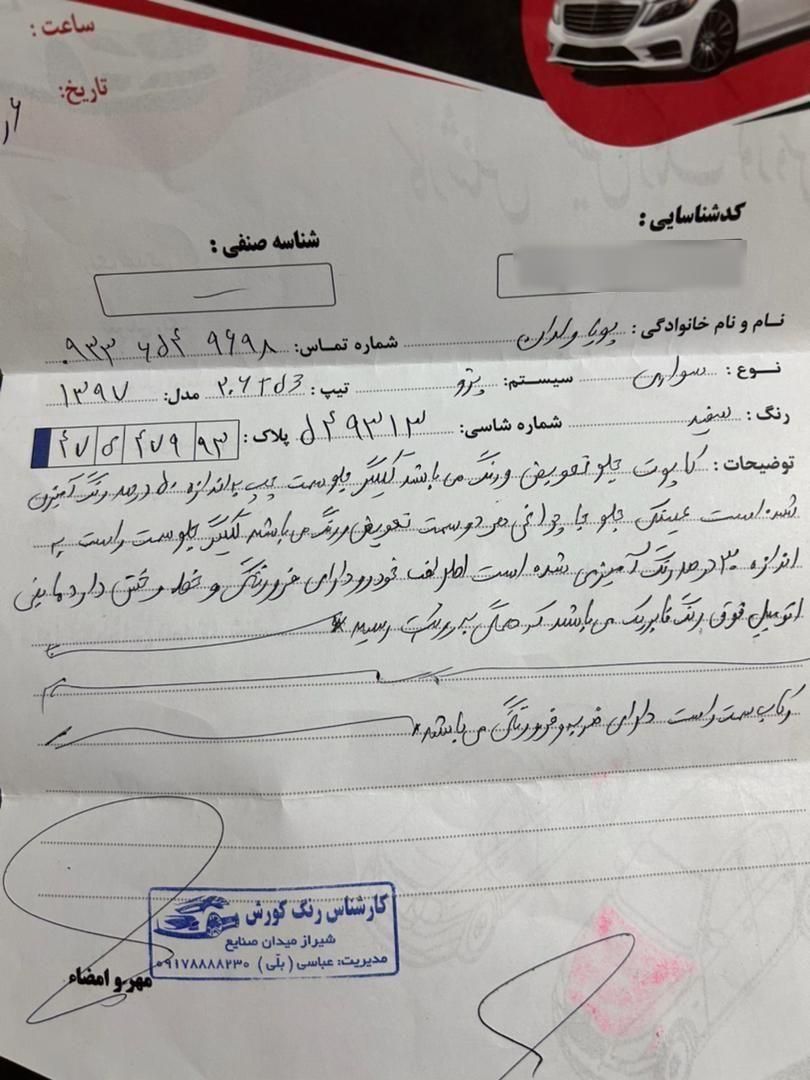 ساعت :
تاریخ:
کدشناسایی :
شناسه صنفی :
نـام و نام خانوادگی : پویا
شماره تماس: ۰۹۳۳ ۶۵۴ ۹۶۹۸
نـوع : سواری سیستم: پژو تیپ: مدل: ۱۳۹۷
رنگ : سفید شماره شاسی: پلاک: ۹۳
توضیحات : کاپوت جلو تعویض و رنگ می باشد گلگیر جلو سمت چپ به اندازه ۵۰ درصد رنگ آمیزی
شده است عینک جلو جا چراغی هر دو سمت تعویض و رنگ می باشد گلگیر جلو سمت راست به
اندازه ۳۰ درصد رنگ آمیزی شده است اطراف خودرو دارای فرورفتگی و خط و خش دارد مابقی
اتومبیل فوق رنگ فابریک می باشد که همگی به رویت رسید
رکاب سمت راست دارای ضربه و فرورفتگی می باشد
کارشناس رنگ کورش
شیراز میدان صنایع
مدیریت: عباسی (بلّی) ۰۹۱۷۸۸۸۸۲۳۰
مهر و امضاء